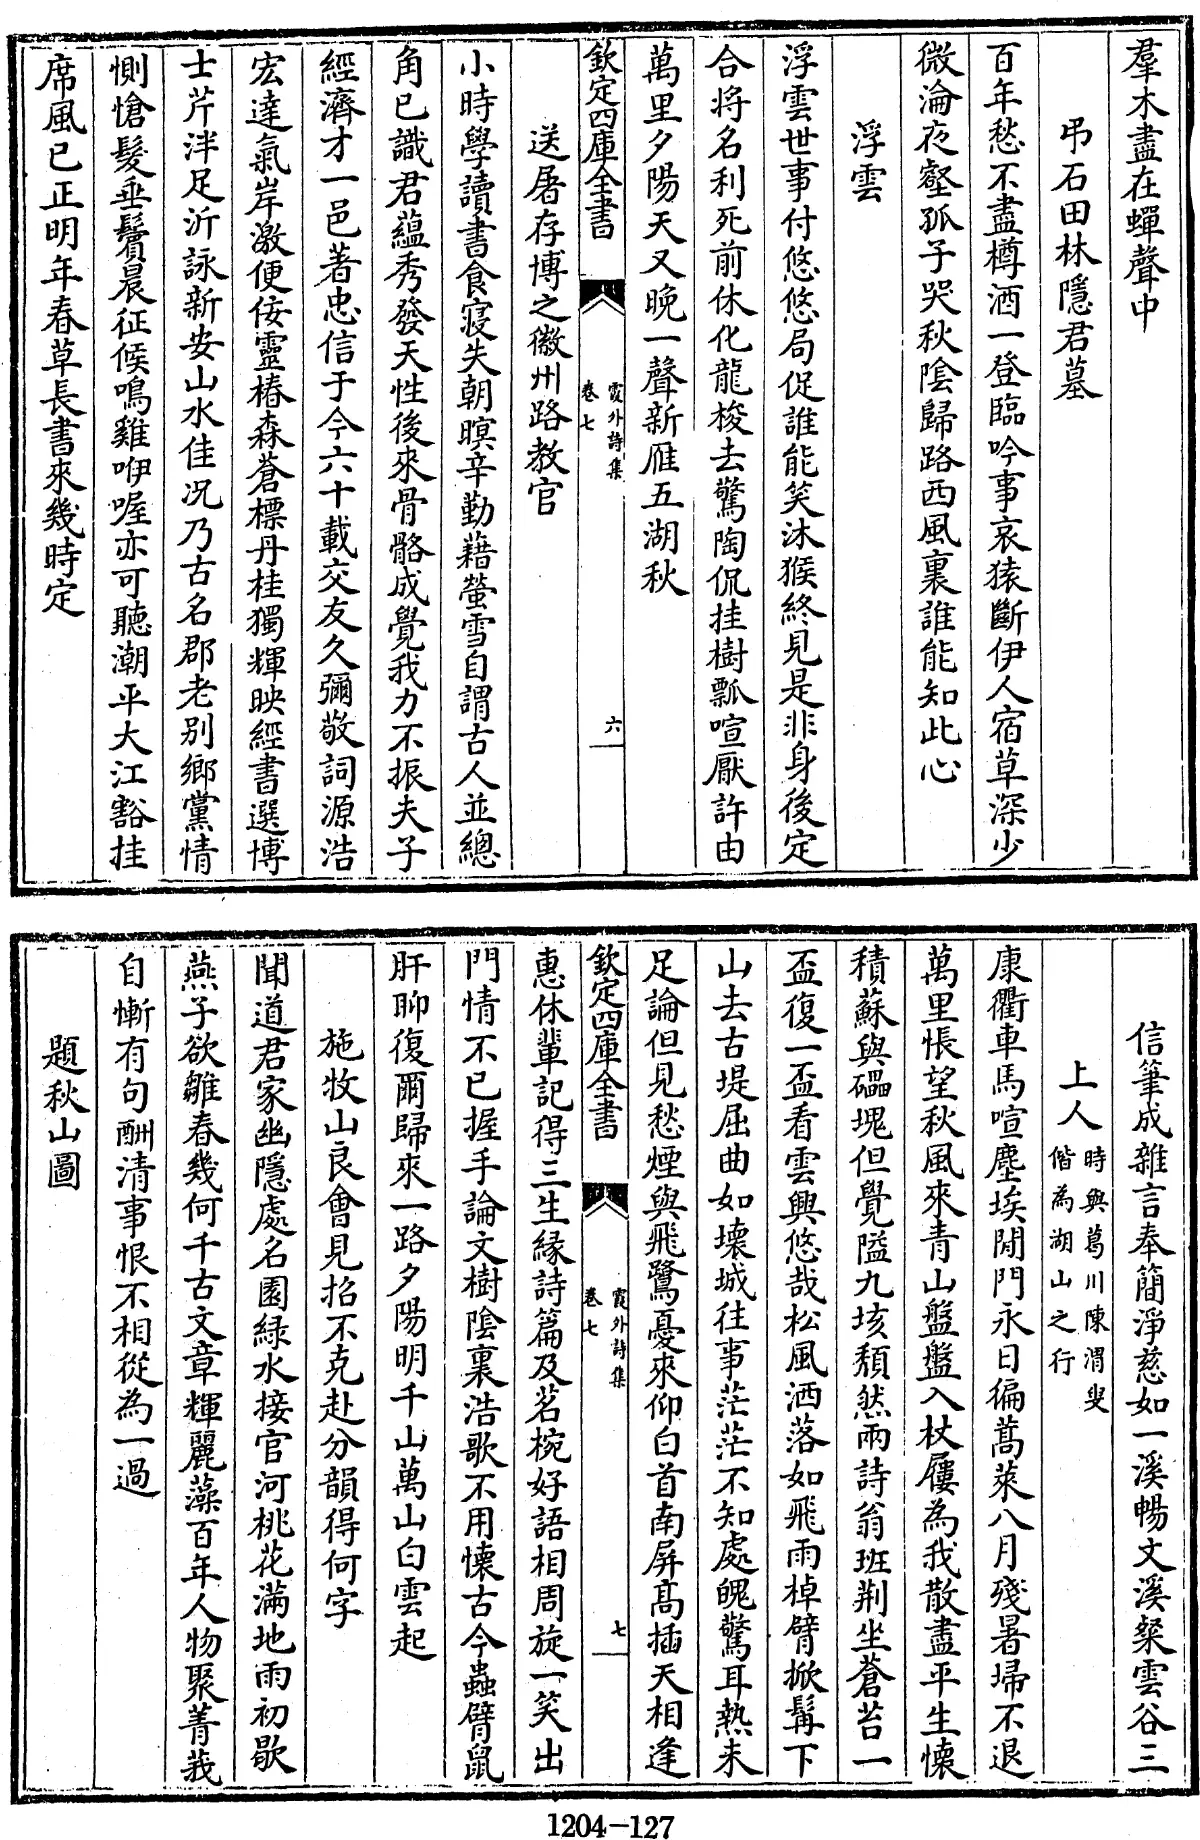 羣木盡在蟬聲中
弔石田林隱君墓
百年愁不盡樽酒一登臨吟事哀猿斷伊人宿草深少
微淪夜壑孤子哭秋陰歸路西風裏誰能知此心
浮雲
浮雲世事付悠悠局促誰能笑沐猴終見是非身後定
合將名利死前休化龍梭去驚陶侃挂樹瓢喧厭許由
萬里夕陽天又晚一聲新雁五湖秋
欽定四庫全書
霞外詩集
卷七
六
送屠存博之徽州路教官
小時學讀書食寢失朝暝辛勤藉螢雪自謂古人並總
角已識君蘊秀發天性後來骨骼成覺我力不振夫子
經濟才一邑著忠信于今六十載交友久彌敬詞源浩
宏達氣岸激便佞靈椿森蒼標丹桂獨輝映經書選博
士芹泮足沂詠新安山水佳况乃古名郡老別鄉黨情
惻愴髮垂鬢晨征候鳴雞咿喔亦可聽潮平大江豁挂
席風已正明年春草長書來幾時定
信筆成雜言奉簡淨慈如一溪暢文溪粲雲谷三
上人
時與葛川陳渭叟
偕為湖山之行
康衢車馬喧塵埃閒門永日徧蒿萊八月殘暑埽不退
萬里悵望秋風來青山盤盤入杖屨為我散盡平生懷
積蘇與礧塊但覺隘九垓頹然兩詩翁班荆坐蒼苔一
盃復一盃看雲興悠哉松風洒落如飛雨掉臂掀髯下
山去古堤屈曲如壞城往事茫茫不知處魄驚耳熱未
足論但見愁煙與飛鷺憂來仰白首南屏髙插天相逢
欽定四庫全書
霞外詩集
卷七
七
惠休輩記得三生緣詩篇及茗椀好語相周旋一笑出
門情不已握手論文樹陰裏浩歌不用懷古今蟲臂鼠
肝聊復爾歸來一路夕陽明千山萬山白雲起
施牧山良會見招不克赴分韻得何字
聞道君家幽隱處名園緑水接官河桃花滿地雨初歇
燕子欲雛春幾何千古文章輝麗藻百年人物聚菁莪
自慚有句酬清事恨不相從為一過
題秋山圖
1204-127